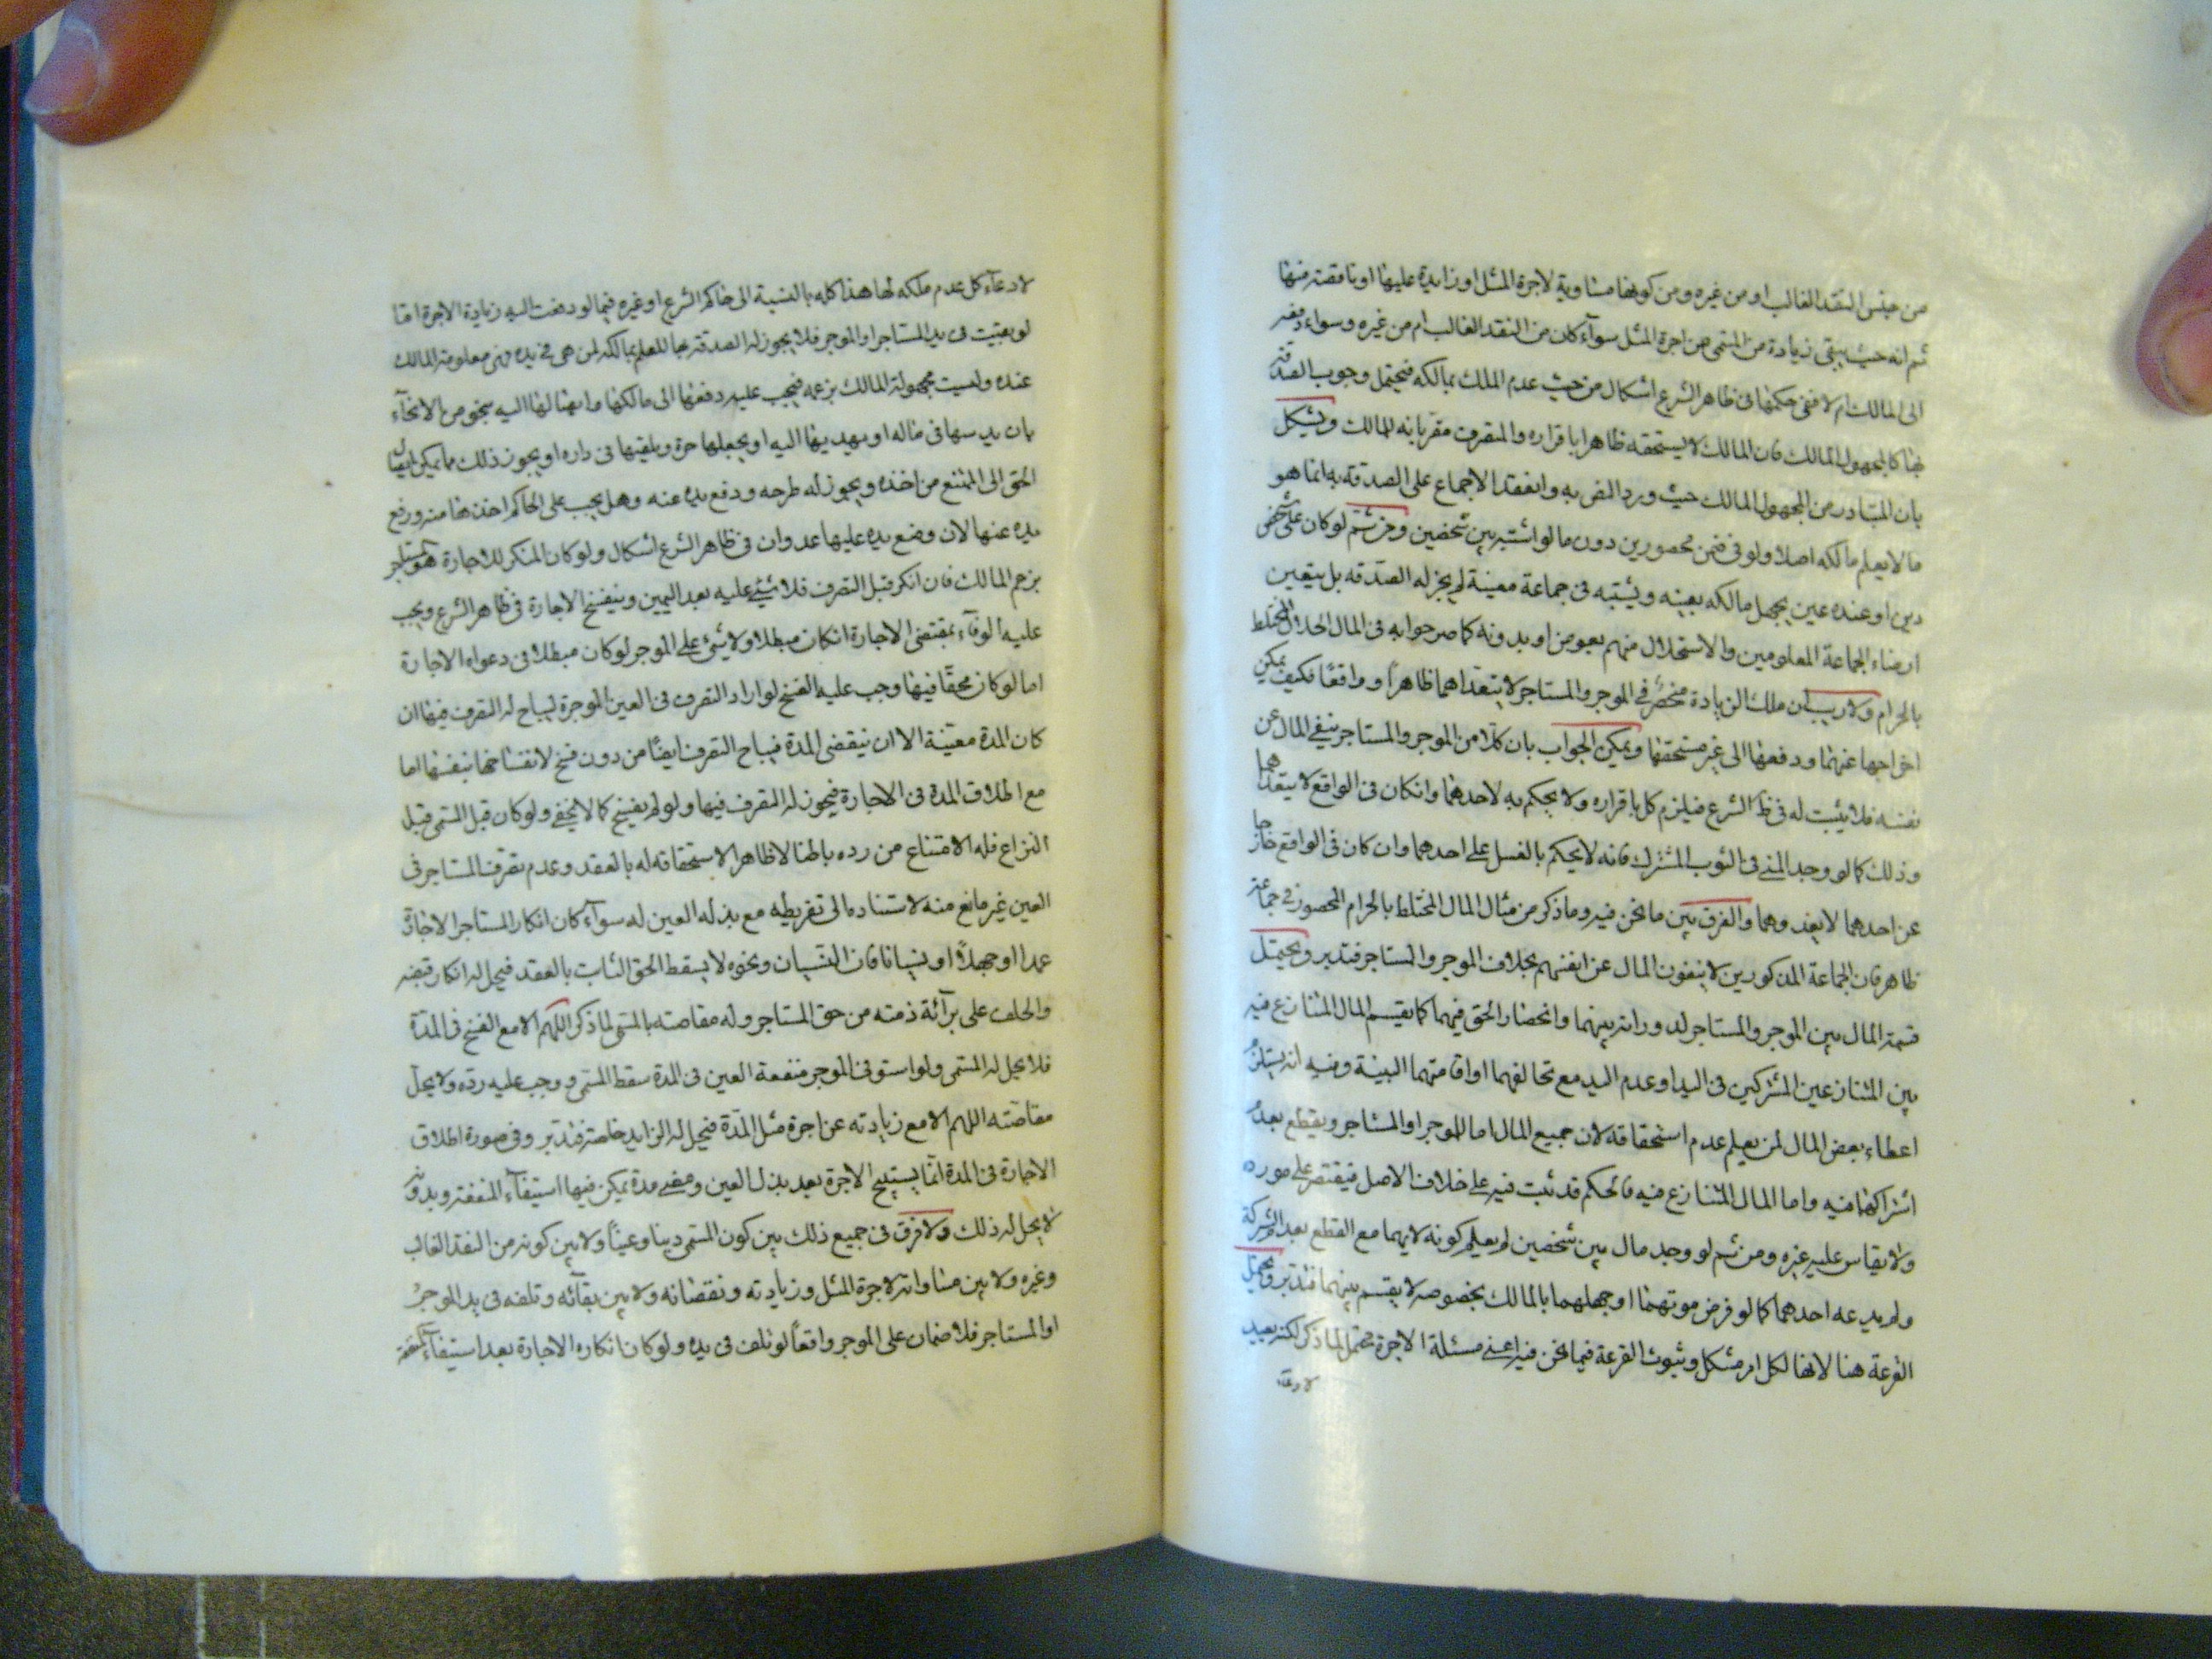 من جنس النقد الغالب او من غيره و من كونها مساوية لاجرة المثل او زايدة عليها او ناقصة منها
ثم انه حيث يبقى زيادة من المسمى من اجرة المثل سوآء كان من النقد الغالب ام من غيره وسواء دفعه
الى المالك ام لا ففى حكمها فى ظاهر الشرع اشكال من حيث عدم الملك بمالكه فيحتمل وجوب الصدقة
بها كالمجهول المالك فان المالك لا يستحقه ظاهرا باقراره والمتصرف مقر بانه للمالك ويشكل
بان المتبادر من المجهول المالك حيث ورد النص به وانعقد الاجماع على الصدقة به انما هو
ما لا يعلم مالكه اصلا ولو فى ضمن محصورين دون ما لو اشتبه بين شخصين ومن ثم لو كان على شخص
دين او عنده عين يجهل مالكه بعينه ويشتبه فى جماعة معينة لم يجز له الصدقه بل يتعين
ارضاء الجماعة المعلومين والاستحلال منهم بعوض او بدونه كما صرحوا به فى المال الحلال المختلط
بالحرام ولا ريب ان ملك الزيادة منحصر فى الموجر والمستاجر لا يتعداهما ظاهراً وواقعًا فكيف يمكن
اخراجها عنهما ودفعها الى غير مستحقها ويمكن الجواب بان كلا من الموجر والمستاجر ينفى المال عن
نفسه فلا يثبت له فى ظ الشرع فيلزم كل باقراره ولا يحكم به لاحدهما وانكان فى الواقع لا يتعداهما
وذلك كما لو وجد المنى فى الثوب المشترك فانه لا يحكم بالغسل على احدهما وان كان فى الواقع خارجا
عن احدهما لا يعدوهما والفرق بين ما نحن فيه وما ذكر من مثال المال المختلط بالحرام المحصور فى جماعة
ظاهر فان الجماعة المذكورين لا ينفون المال عن انفسهم بخلاف الموجر والمستاجر فتدبر ويحتمل
قسمة المال بين الموجر والمستاجر لدورانه بينهما وانحصار الحق فيهما كما يقسم المال المتنازع فيه
بين المتنازعين المشتركين فى اليد او عدم اليد مع تحالفهما او اقامتهما البينة وفيه انه يستلزم
اعطاء بعض المال لمن يعلم عدم استحقاقه لان جميع المال اما للموجر او المستاجر ويقطع بعدم
اشتراكهما فيه واما المال المتنازع فيه فالحكم قد ثبت فيه على خلاف الاصل فيقتصر على مورده
ولا يقاس عليه غيره ومن ثم لو وجد مال بين شخصين لم يعلم كونه لايهما مع القطع بعدم الشركة
ولم يدعه احدهما كما لو فرض موتهما او جهلهما بالمالك بخصوصه لا يقسم بينهما فتدبر ويحتمل
القرعة هنا لانها لكل امر مشكل وثبوت القرعة فيما نحن فيه اعنى مسئلة الاجرة محتمل لما ذكر لكنه بعيد
لادعآء
لادعآء كل عدم ملكه لها هذا كله بالنسبة الى حاكم الشرع او غيره فيما لو دفعت اليه زيادة الاجرة اما
لو بقيت فى يد المستاجر او الموجر فلا يجوز له الصدقة بها للعلم بمالكه لمن هى فى يده فهى معلومة المالك
عنده وليست مجهولة المالك بزعمه فيجب عليه دفعها الى مالكها وايصالها اليه بنحو من الانحآء
بان يدسها فى ماله او يهديها اليه او يجعلها حرة ويلقيها فى داره او يجوز ذلك مما يمكن ايصال
الحق الى الممتنع من اخذه ويجوز له طرحه ودفع يده عنه وهل يجب على الحاكم اخذها منه ورفع
يده عنها لان وضع يده عليها عدوان فى ظاهر الشرع اشكال ولو كان المنكر للاجارة هو المستاجر
بزعم المالك فان انكر قبل التصرف فلا شيئ عليه بعد اليمين وينفسخ الاجارة فى ظاهر الشرع ويجب
عليه الوفآء بمقتضى الاجارة انكان مبطلا ولا شيئ على الموجر لو كان مبطلا فى دعواه الاجارة
اما لو كان محقًا فيها وجب عليه الفسخ لو اراد التصرف فى العين الموجرة ليباح له التصرف فيها ان
كان المدة معيّنة الا ان ينقضى المدة فيباح التصرف ايضًا من دون فسخ لانفساخها بنفسها اما
مع اطلاق المدة فى الاجارة فيجوز له التصرف فيها ولو لم يفسخ كما لا يخفى ولو كان قبل المسمى قبل
النزاع فله الامتناع من رده باطنا لا ظاهرا لاستحقاقه له بالعقد وعدم تصرف المستاجر فى
العين غير مانع منه لاستناده الى تفريطه مع بذله العين له سوآء كان انكار المستاجر الاجارة
عمدا او جهلاً او نسيانا فان النسيان ونحوه لا يسقط الحق الثابت بالعقد فيحل له انكار قبضه
والحلف على برآئة ذمته من حق المستاجر وله مقاصته بالمسمى لما ذكر اللهم الا مع الفسخ فى المدة
فلا يحل له المسمى ولو استوفى الموجر منفعة العين فى المدة سقط المسمى ووجب عليه ردّه ولا يحل
مقاصّته اللهم الا مع زيادته عن اجرة مثل المدّة فيحل له الزايد خاصة فتدبر وفى صورة اطلاق
الاجارة فى المدة انمّا يستبيح الاجرة بعد بذل العين ومضى مدة يمكن فيها استيفآء المنفعة وبدونه
لا يحل له ذلك ولا فرق فى جميع ذلك بين كون المسمى دينا وعيناً ولا بين كونه من النقد الغالب
وغيره ولا بين مساواته لاجرة المثل وزيادته ونقصانه ولا بين بقآئه وتلفه فى يد الموجر
او المستاجر فلا ضمان على الموجر واقعاً لو تلف فى يده ولو كان انكاره الاجارة بعد استيفآء المنفعة